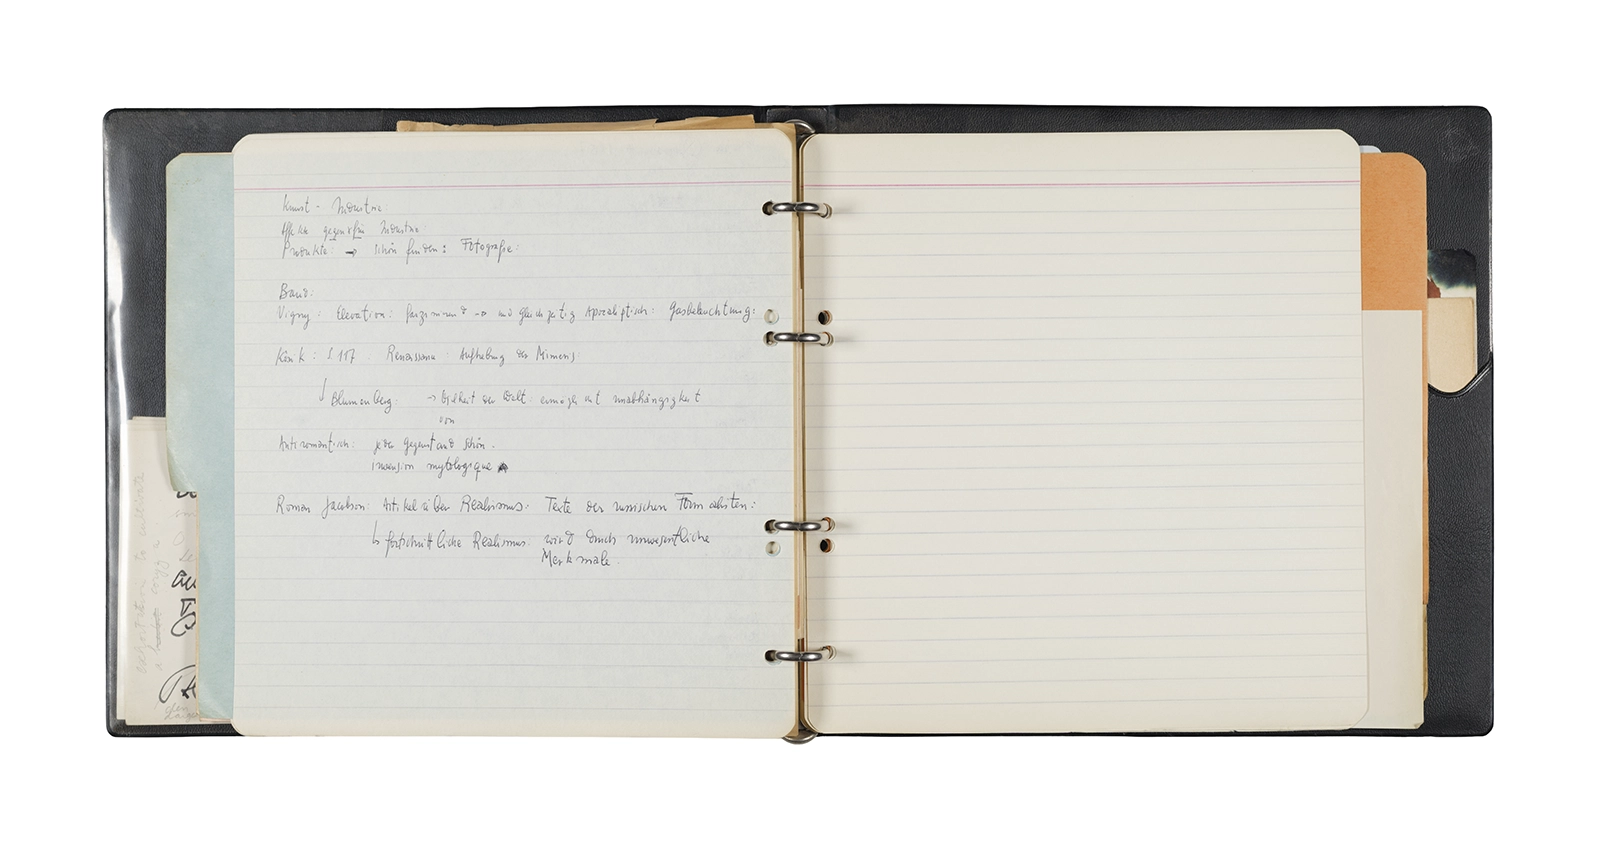 Kunst - Industrie
gegen für Industrie
Produkte: → schön finden: Fotografie:
Band:
Vigny: Elevation: faszinierend → und gleichzeitig Apocaliptisch: Gasbeleuchtung:
S 117: Renaissance: Aufhebung der Mimesis
Blumenberg: → der Welt: ermöglicht unabhängigkeit
von
Antiromantisch: jeder Gegenstand schön.
invension mytologique
Roman Jacobson: Artikel über Realismus: Texte der russischen Formalisten:
↳ fortschrittliche Realismus: wird durch unwesentliche
Merkmale.
to cultivate
copy